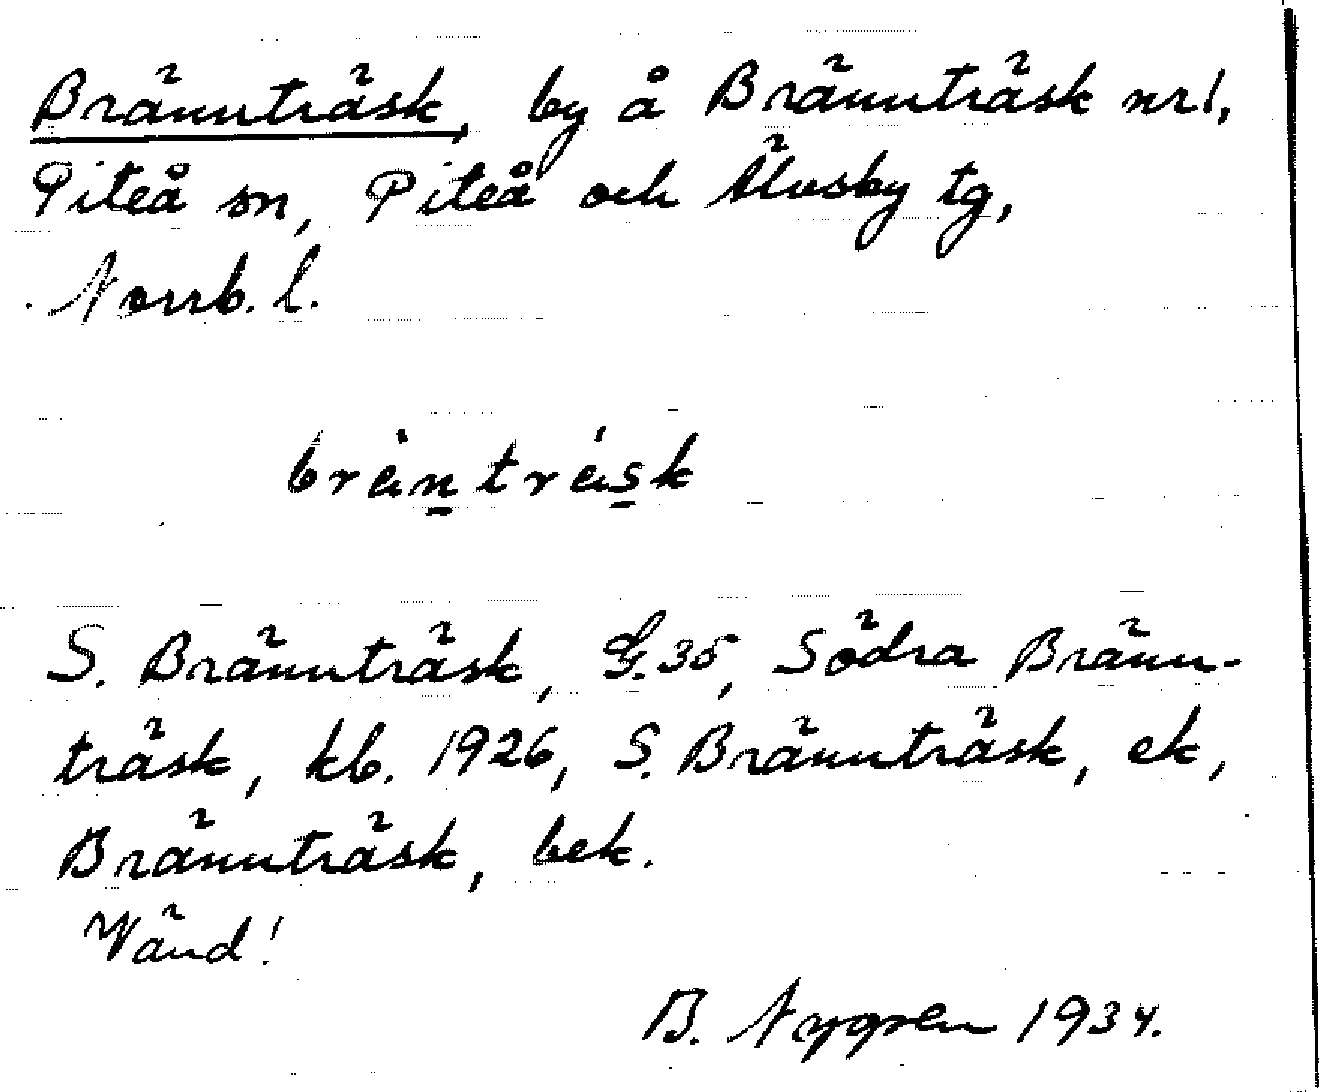 Brännträsk, by å Brännträsk nr1,
Piteå sn, Piteå och Älvsby tg,
Norrb. l.
S. Brännträsk, G.35, Södra Bränn-
träsk, kb. 1926, S. Brännträsk, ek,
Brännträsk, bek.
Vänd!
B. Nygren 1934.